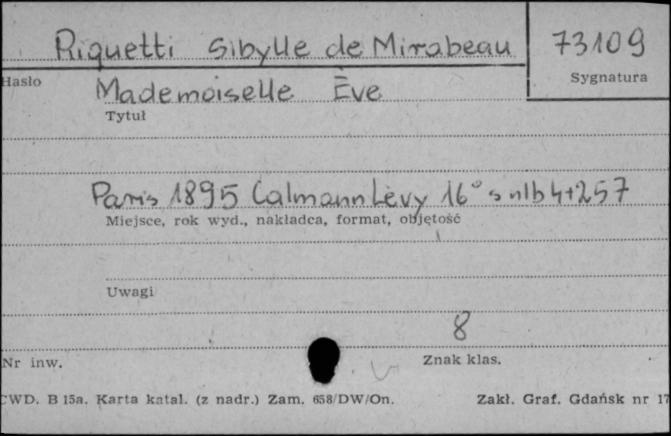 Riquetti Sibylle de Mirabeau 73109
Hasło Sygnatura
Mademoiselle Ève
Tytuł
Paris 1895 Calmann Lèvy 16° s nlb 4+257
Miejsce, rok wyd., nakładca, format, objętość
Uwagi
8
Nr inw. Znak klas.
CWD. B 15a. Karta katal. (z nadr.) Zam. 658/DW/On. Zakł. Graf. Gdańsk nr 17